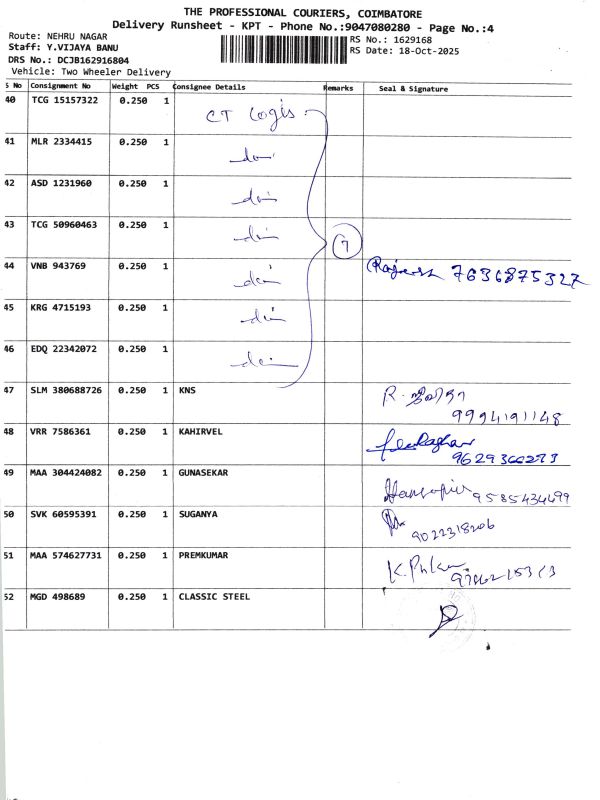 THE PROFESSIONAL COURIERS, COIMBATORE
Delivery Runsheet - KPT - Phone No.:9047080280 - Page No.:4
Route: NEHRU NAGAR
Staff: Y.VIJAYA BANU
DRS No.: DCJB162916804
Vehicle: Two Wheeler Delivery
RS No.: 1629168
RS Date: 18-Oct-2025
S No Consignment No Weight PCS Consignee Details Remarks Seal & Signature
40 TCG 15157322 0.250 1 CT Logis
41 MLR 2334415 0.250 1
42 ASD 1231960 0.250 1
43 TCG 50960463 0.250 1 7
44 VNB 943769 0.250 1 7636875327
45 KRG 4715193 0.250 1
46 EDQ 22342072 0.250 1
47 SLM 380688726 0.250 1 KNS R.
9994191148
48 VRR 7586361 0.250 1 KAHIRVEL
9629366273
49 MAA 304424082 0.250 1 GUNASEKAR 9585434699
50 SVK 60595391 0.250 1 SUGANYA
9022318206
51 MAA 574627731 0.250 1 PREMKUMAR
52 MGD 498689 0.250 1 CLASSIC STEEL